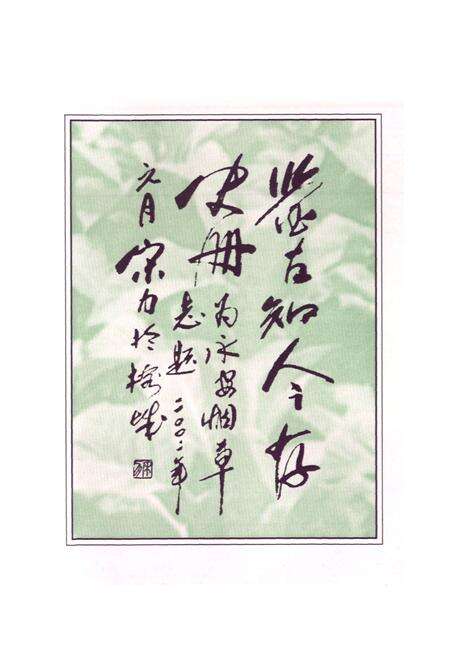 鉴古知今存
史册
为永安烟草
志题
二〇〇二年
元月宋力于榕城